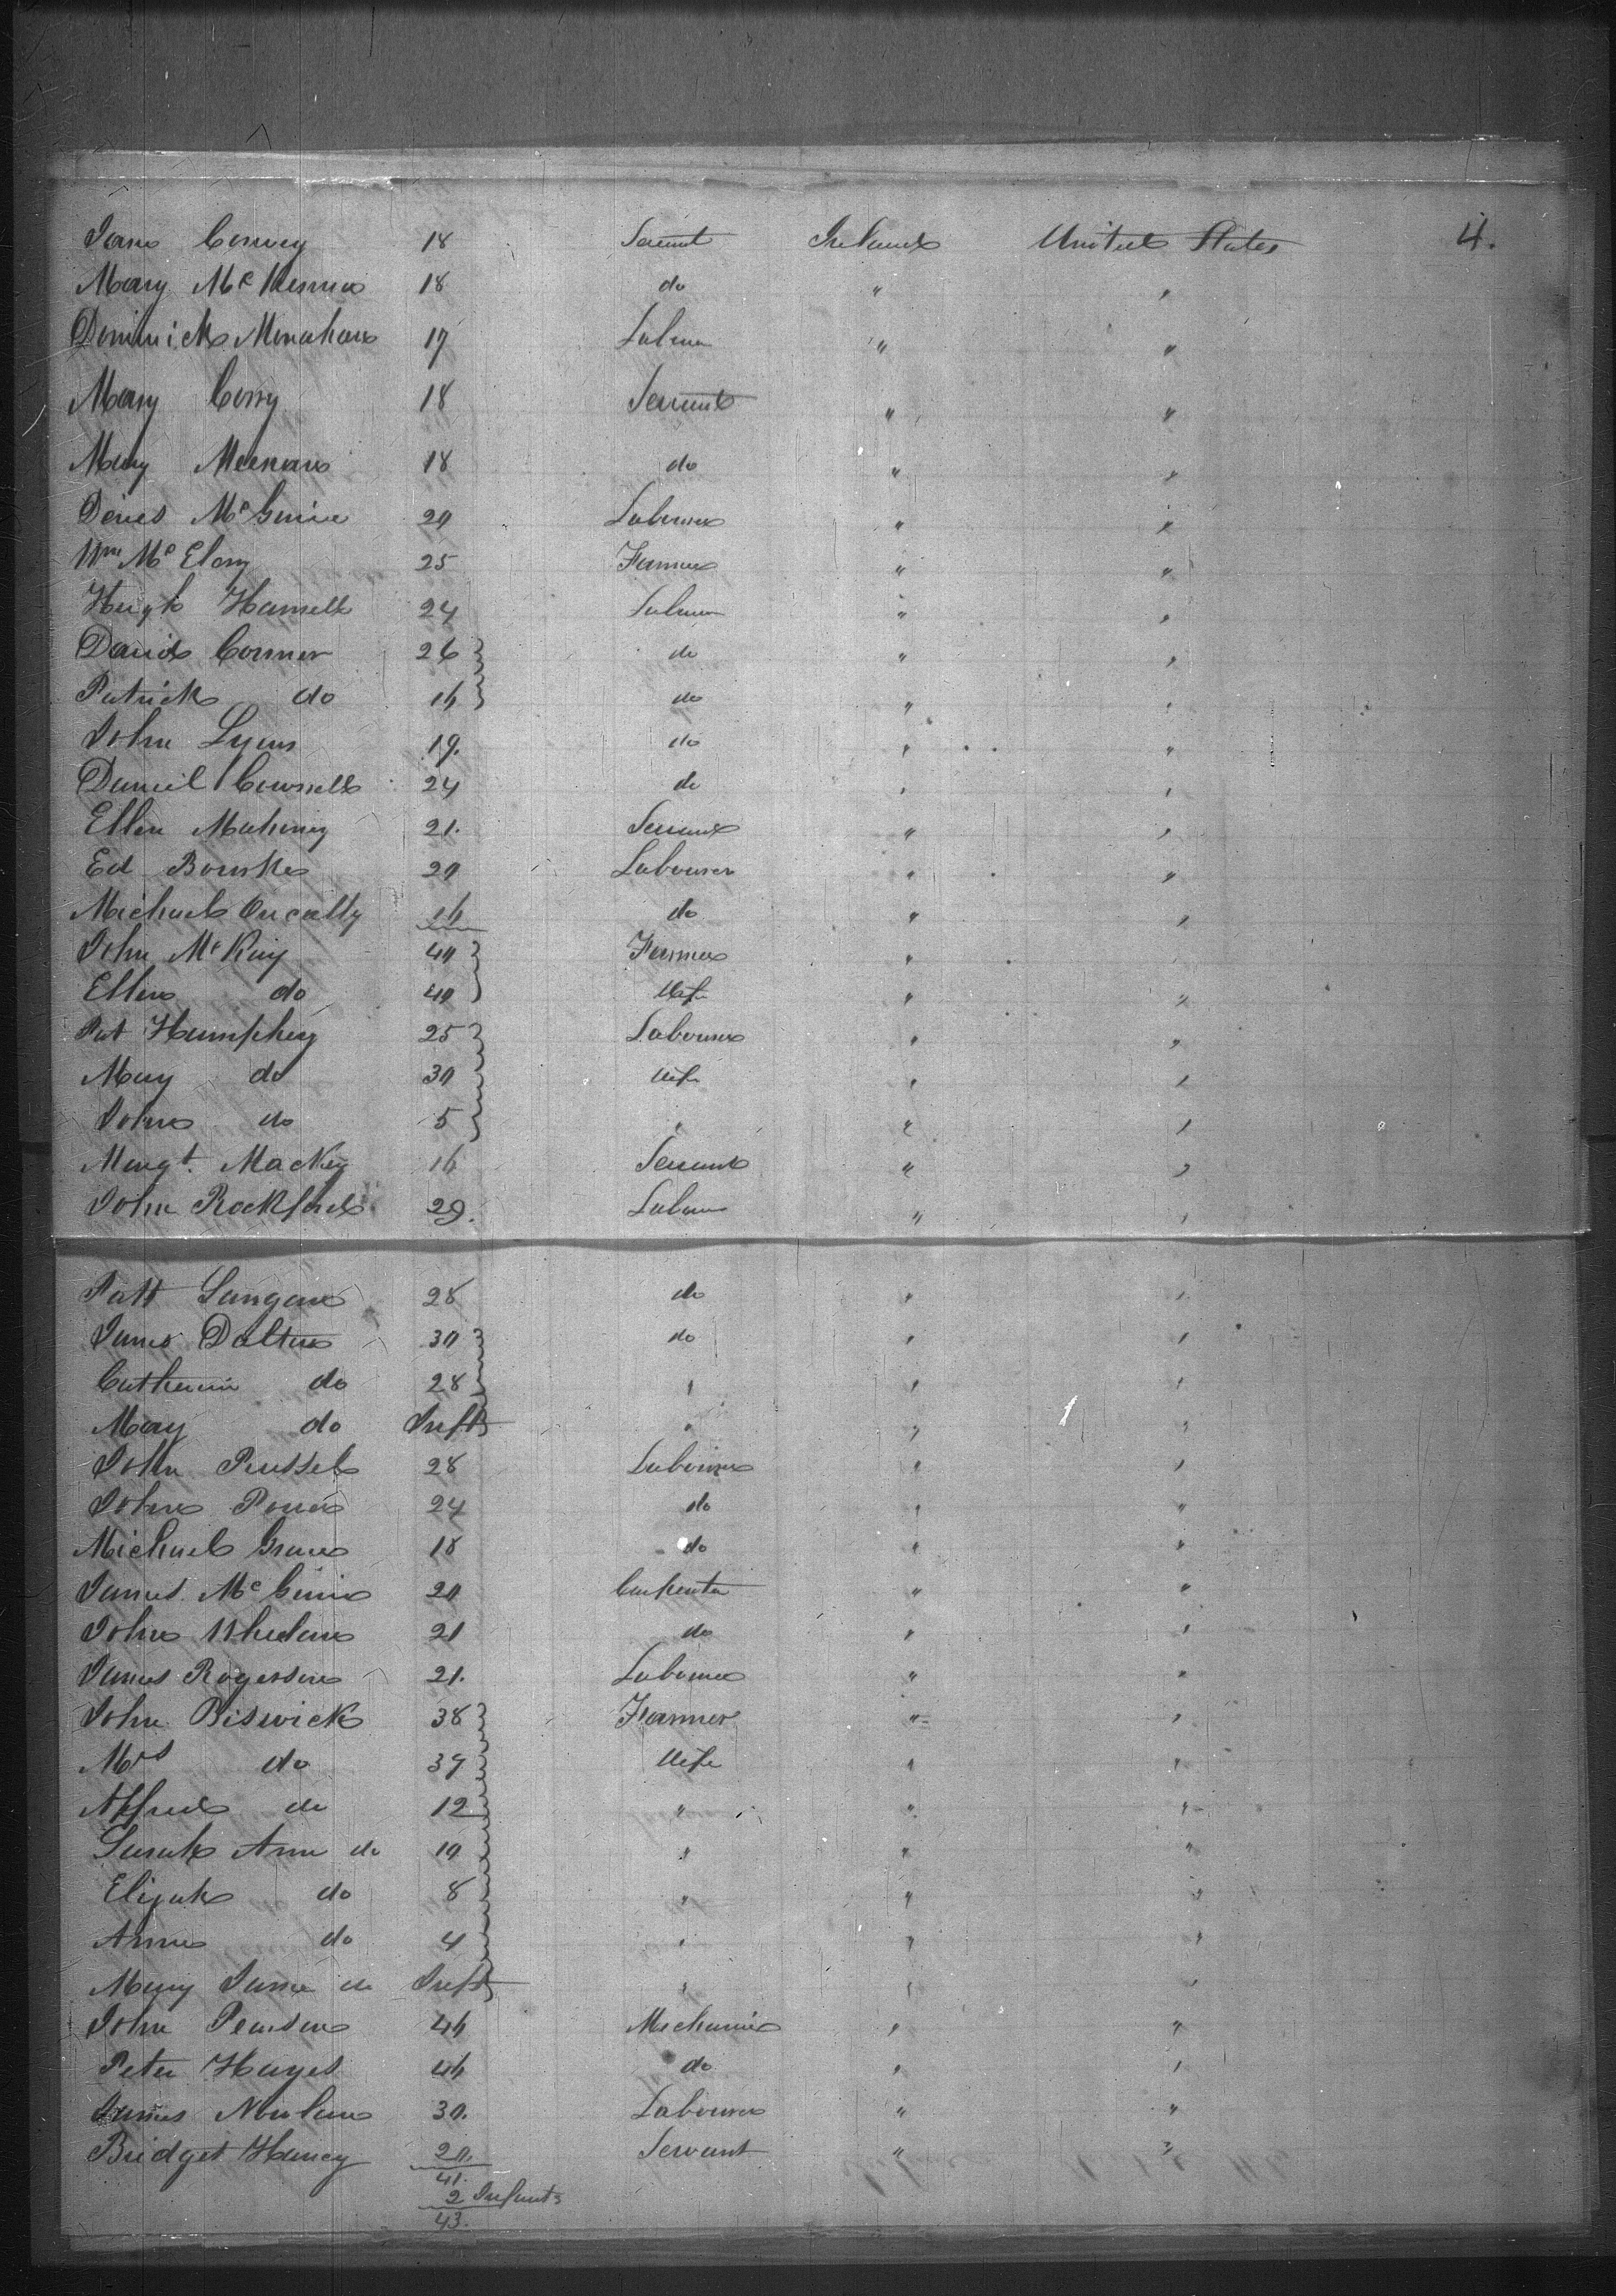 4.
Jane Conwey 18 Servant Ireland United States
Mary McKenna 18 do " "
Dominick Monahan 17 Labour " "
Mary Corry 18 Servant " "
Mary Meenan 18 do " "
Denis McGuire 20 Labourer " "
Wm McElory 25 Farmer " "
Hugh Hamell 24 Labour " "
David Connor 26 do " "
Patrick do 16 do " "
John Lyens 19. do " "
Daniel 24 do " "
Ellen Mahoney 21. Servant " "
Ed Bourke 20 Labourer " "
Michael 16 do " "
John McKay 40 Farmer "
Ellen do 40 Wife " "
Pat Humphrey 25 Labourer " "
Mary do 30 Wife " "
John do 5 " " "
Margt. Mackey 16 Servant " "
John Rockford 29. Labour " "
Patt Langan 28 do " "
James Dalton 30 do " "
Catherine do 28 " " "
Mary do Inft " " "
John Russel 28 Labourer " "
John Power 24 do " "
Michael Grace 18 do " "
James 20 Carpenter " "
John Whelan 21 do " "
James Rogerson 21. Labourer " "
John Biswick 38 Farmer " "
Mrs do 37 Wife " "
Alfred do 12 " " "
Sarah Ann do 10 " " "
Elijah do 8 " " "
Anne do 4 " " "
Mary Jane do Inft " " "
John Pearson 46 Mechanic " "
Peter Hayes 46 do " "
James Nowlan 30. Labourer " "
Bridget Haney 20. Servant " "
41.
2 Infants
43.